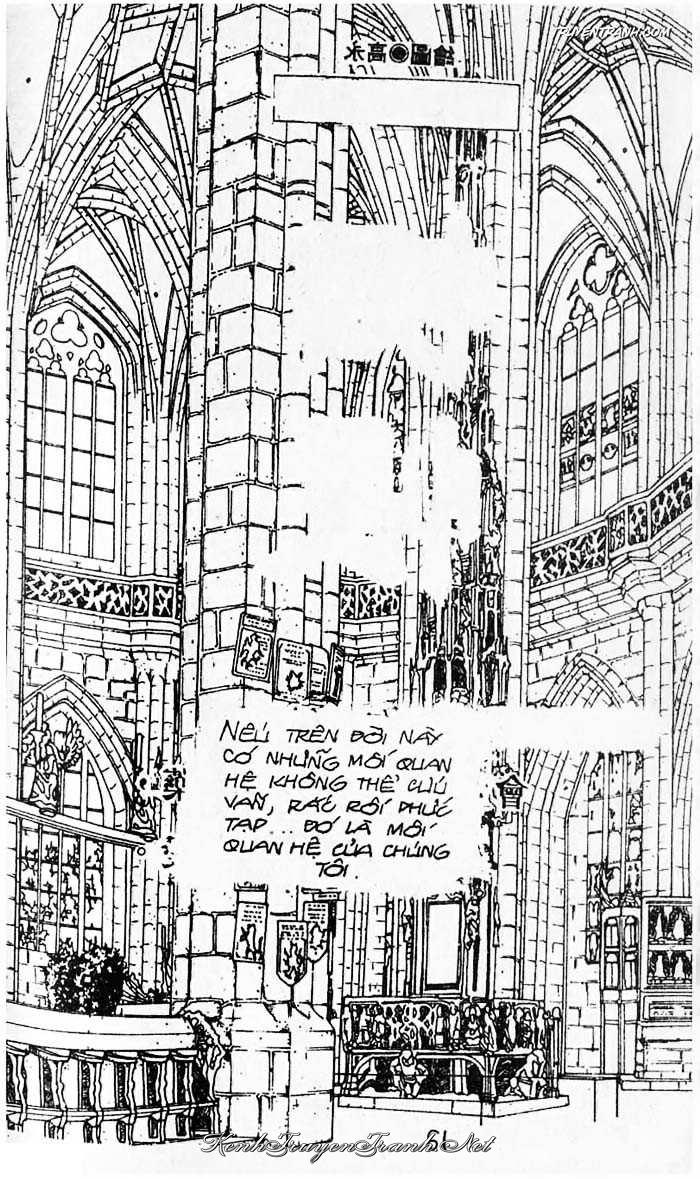 TRUYENTRANH.COM
永高◉圖繪
NẾU TRÊN ĐỜI NÀY
CÓ NHỮNG MỐI QUAN
HỆ KHÔNG THỂ CỨU
VÃN, RẮC RỐI PHỨC
TẠP... ĐÓ LÀ MỐI
QUAN HỆ CỦA CHÚNG
TÔI.
KenhTruyenTranh.Net